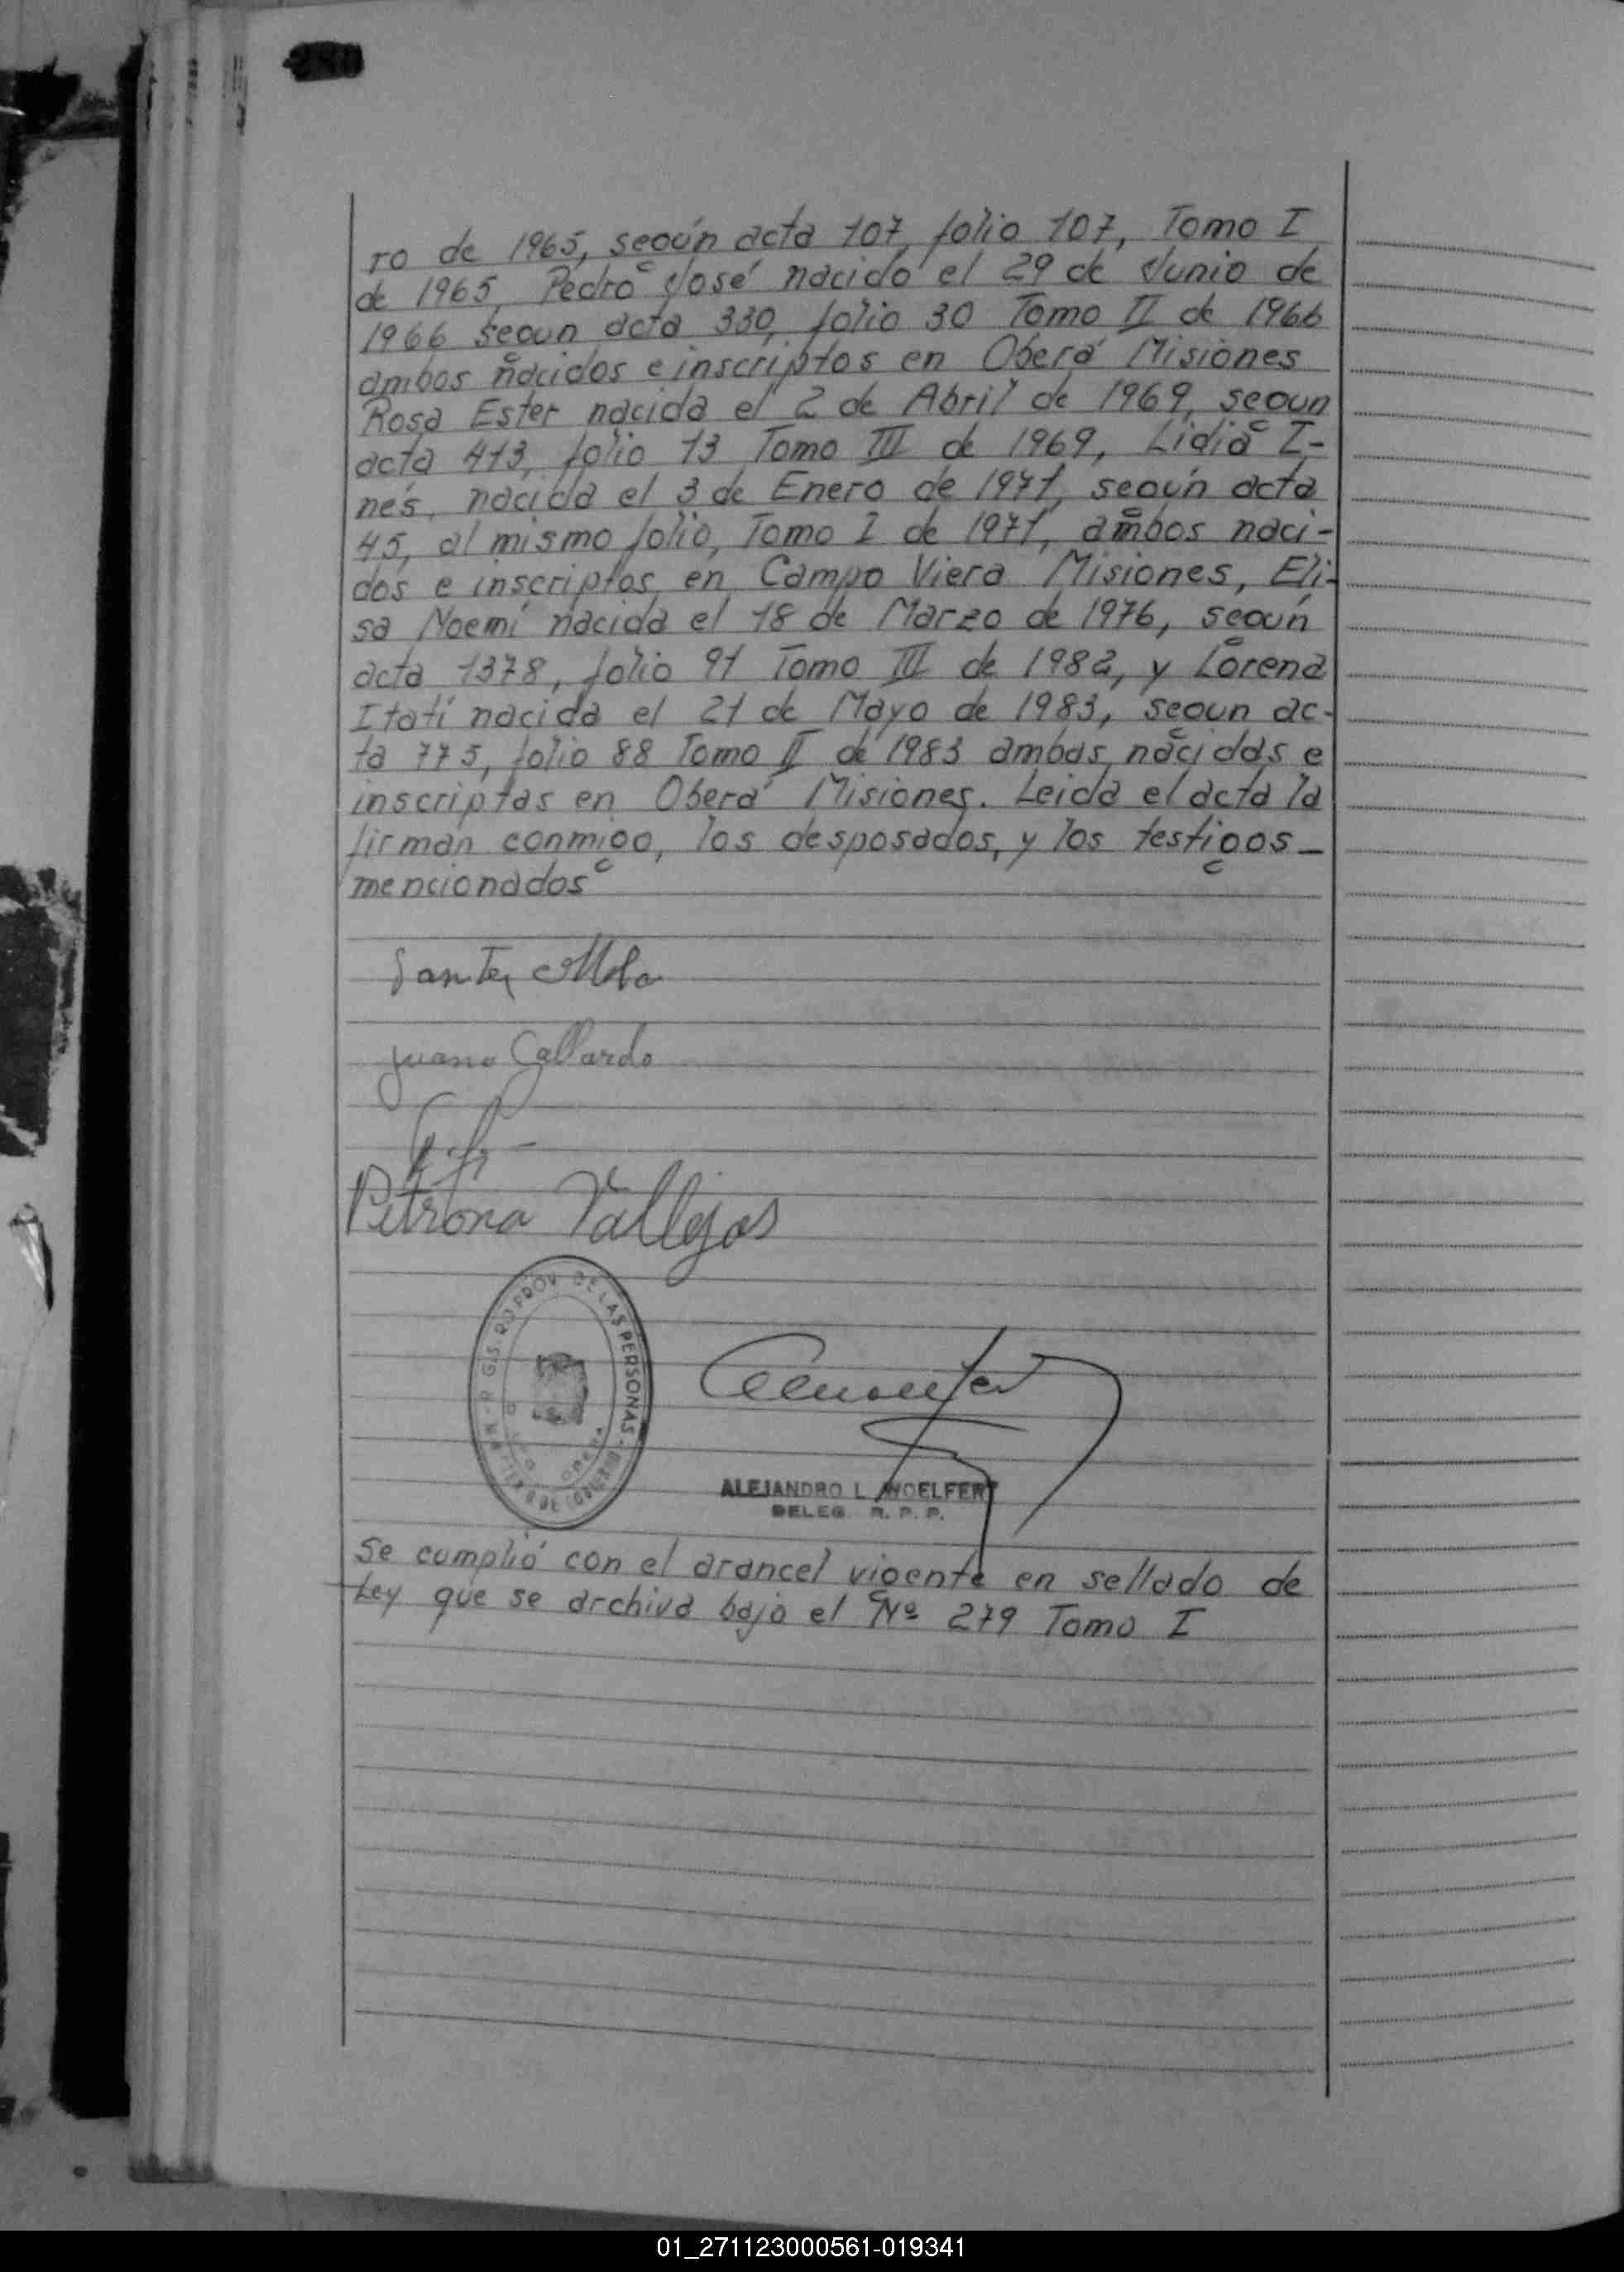 ro de 1965, según acta 107, folio 107, Tomo I
de 1965, Pedro José nacido el 29 de Junio de
1966 segun acta 330, folio 30 Tomo II de 1966
ambos nacidos e inscriptos en Oberá Misiones
Rosa Ester nacida el 2 de Abril de 1969, segun
acta 413, folio 13 Tomo III de 1969, Lidia I-
nés, nacida el 3 de Enero de 1971, según acta
45, al mismo folio, Tomo I de 1971, ambos naci-
dos e inscriptos en Campo Viera Misiones, Eli-
sa Noemí nacida el 18 de Marzo de 1976, según
acta 1378, folio 91 Tomo III de 1982, y Lorena
Itatí nacida el 21 de Mayo de 1983, segun ac-
ta 775, folio 88 Tomo II de 1983 ambas nacidas e
inscriptas en Oberá Misiones. Leida el acta la
firman conmigo, los desposados, y los testigos
mencionados
Juana Gallardo
Petrona Vallejos
PROV. DE LAS PERSONAS
ALEJANDRO L. WOELFERT
DELEG. R. P. P.
Se cumplió con el arancel vigente en sellado de
Ley que se archiva bajo el Nº 279 Tomo I
01_271123000561-019341